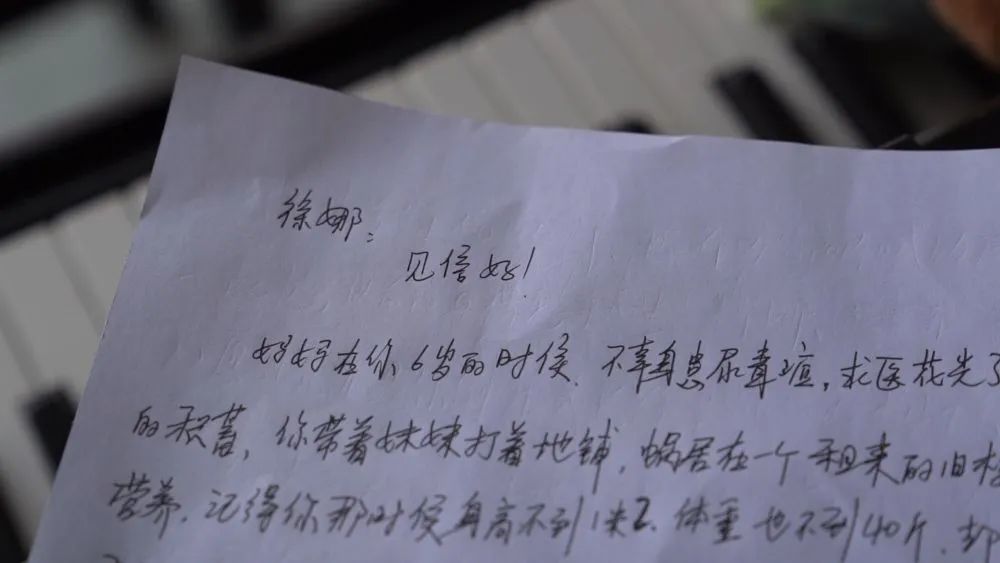 徐娜：
见信好！
妈妈在你6岁的时候，不幸身患尿毒症，求医花光了
的积蓄，你带着妹妹打着地铺，蜗居在一个租来的旧
营养，记得你那时候身高不到1米2，体重也不到40斤，却